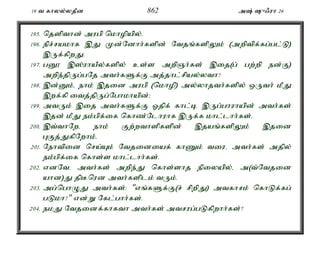 19 வ காலல்லதீன 862 அஷ் ஷுஃரா 26
195. தெளிவான் அரபி மொழியில்.
196. நிச்சயமாக இது முன்னோர்களின் வேதங்களிலும் (அறிவிக்கப்பட்டு) இருக்கிறது.
197. பனூ இஸ்ராயீல்களில் உள்ள அறிஞர்கள் இதை(ப் பற்றி நன்கு) அறிந்திருப்பதே அவர்களுக்கு அத்தாட்சியல்லவா?
198. இன்னும், நாம் இதனை அரபி (மொழி) அல்லாதவர்களில் ஒருவர் மீது இறக்கி வைத்திருப்போமாயின்;
199. அவரும் இதை அவர்களுக்கு ஓதிக் காட்டி இருப்பாராயின் அவர்கள் இதன் மீது நம்பிக்கை கொண்டோராக இருக்க மாட்டார்கள்.
200. இவ்வாறே, நாம் குற்றவாளிகளின் இதயங்களிலும் இதனை புகுத்துகிறோம்.
201. நோவினை செய்யும் வேதனையைக் காணும் வரை, அவர்கள் அதில் நம்பிக்கை கொள்ள மாட்டார்கள்.
202. எனவே, அவர்கள் அறிந்து கொள்ளாத நிலையில், அ(வ்வேதனையான)து திடீரென அவர்களிடம் வரும்.
203. அப்பொழுது அவர்கள்: "எங்களுக்கு(ச் சிறிது) அவகாசம் கொடுக்கப்படுமா?" என்று கேட்பார்கள்.
204. நமது வேதனைக்காகவா அவர்கள் அவசரப்படுகிறார்கள்?